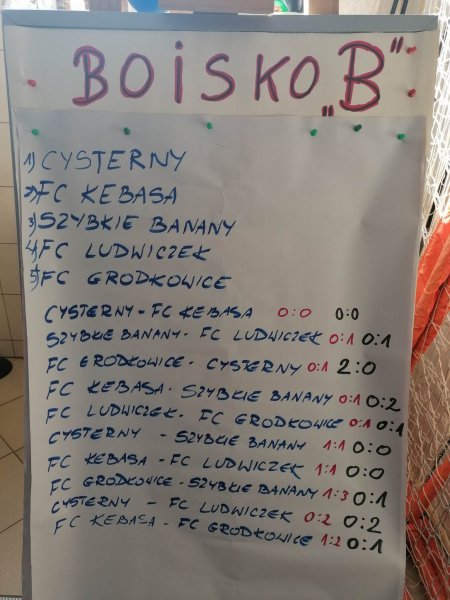 BOISKO „B"
1) CYSTERNY
2) FC KEBASA
3) SZYBKIE BANANY
4) FC LUDWICZEK
5) FC GRODKOWICE
CYSTERNY - FC KEBASA 0:0 0:0
SZYBKIE BANANY - FC LUDWICZEK 0:1 0:1
FC GRODKOWICE - CYSTERNY 0:1 2:0
FC KEBASA - SZYBKIE BANANY 0:1 0:2
FC LUDWICZEK - FC GRODKOWICE 0:1 0:1
CYSTERNY - SZYBKIE BANANY 1:1 0:0
FC KEBASA - FC LUDWICZEK 1:1 0:0
FC GRODKOWICE - SZYBKIE BANANY 1:3 0:1
CYSTERNY - FC LUDWICZEK 0:2 0:2
FC KEBASA - FC GRODKOWICE 1:2 0:1